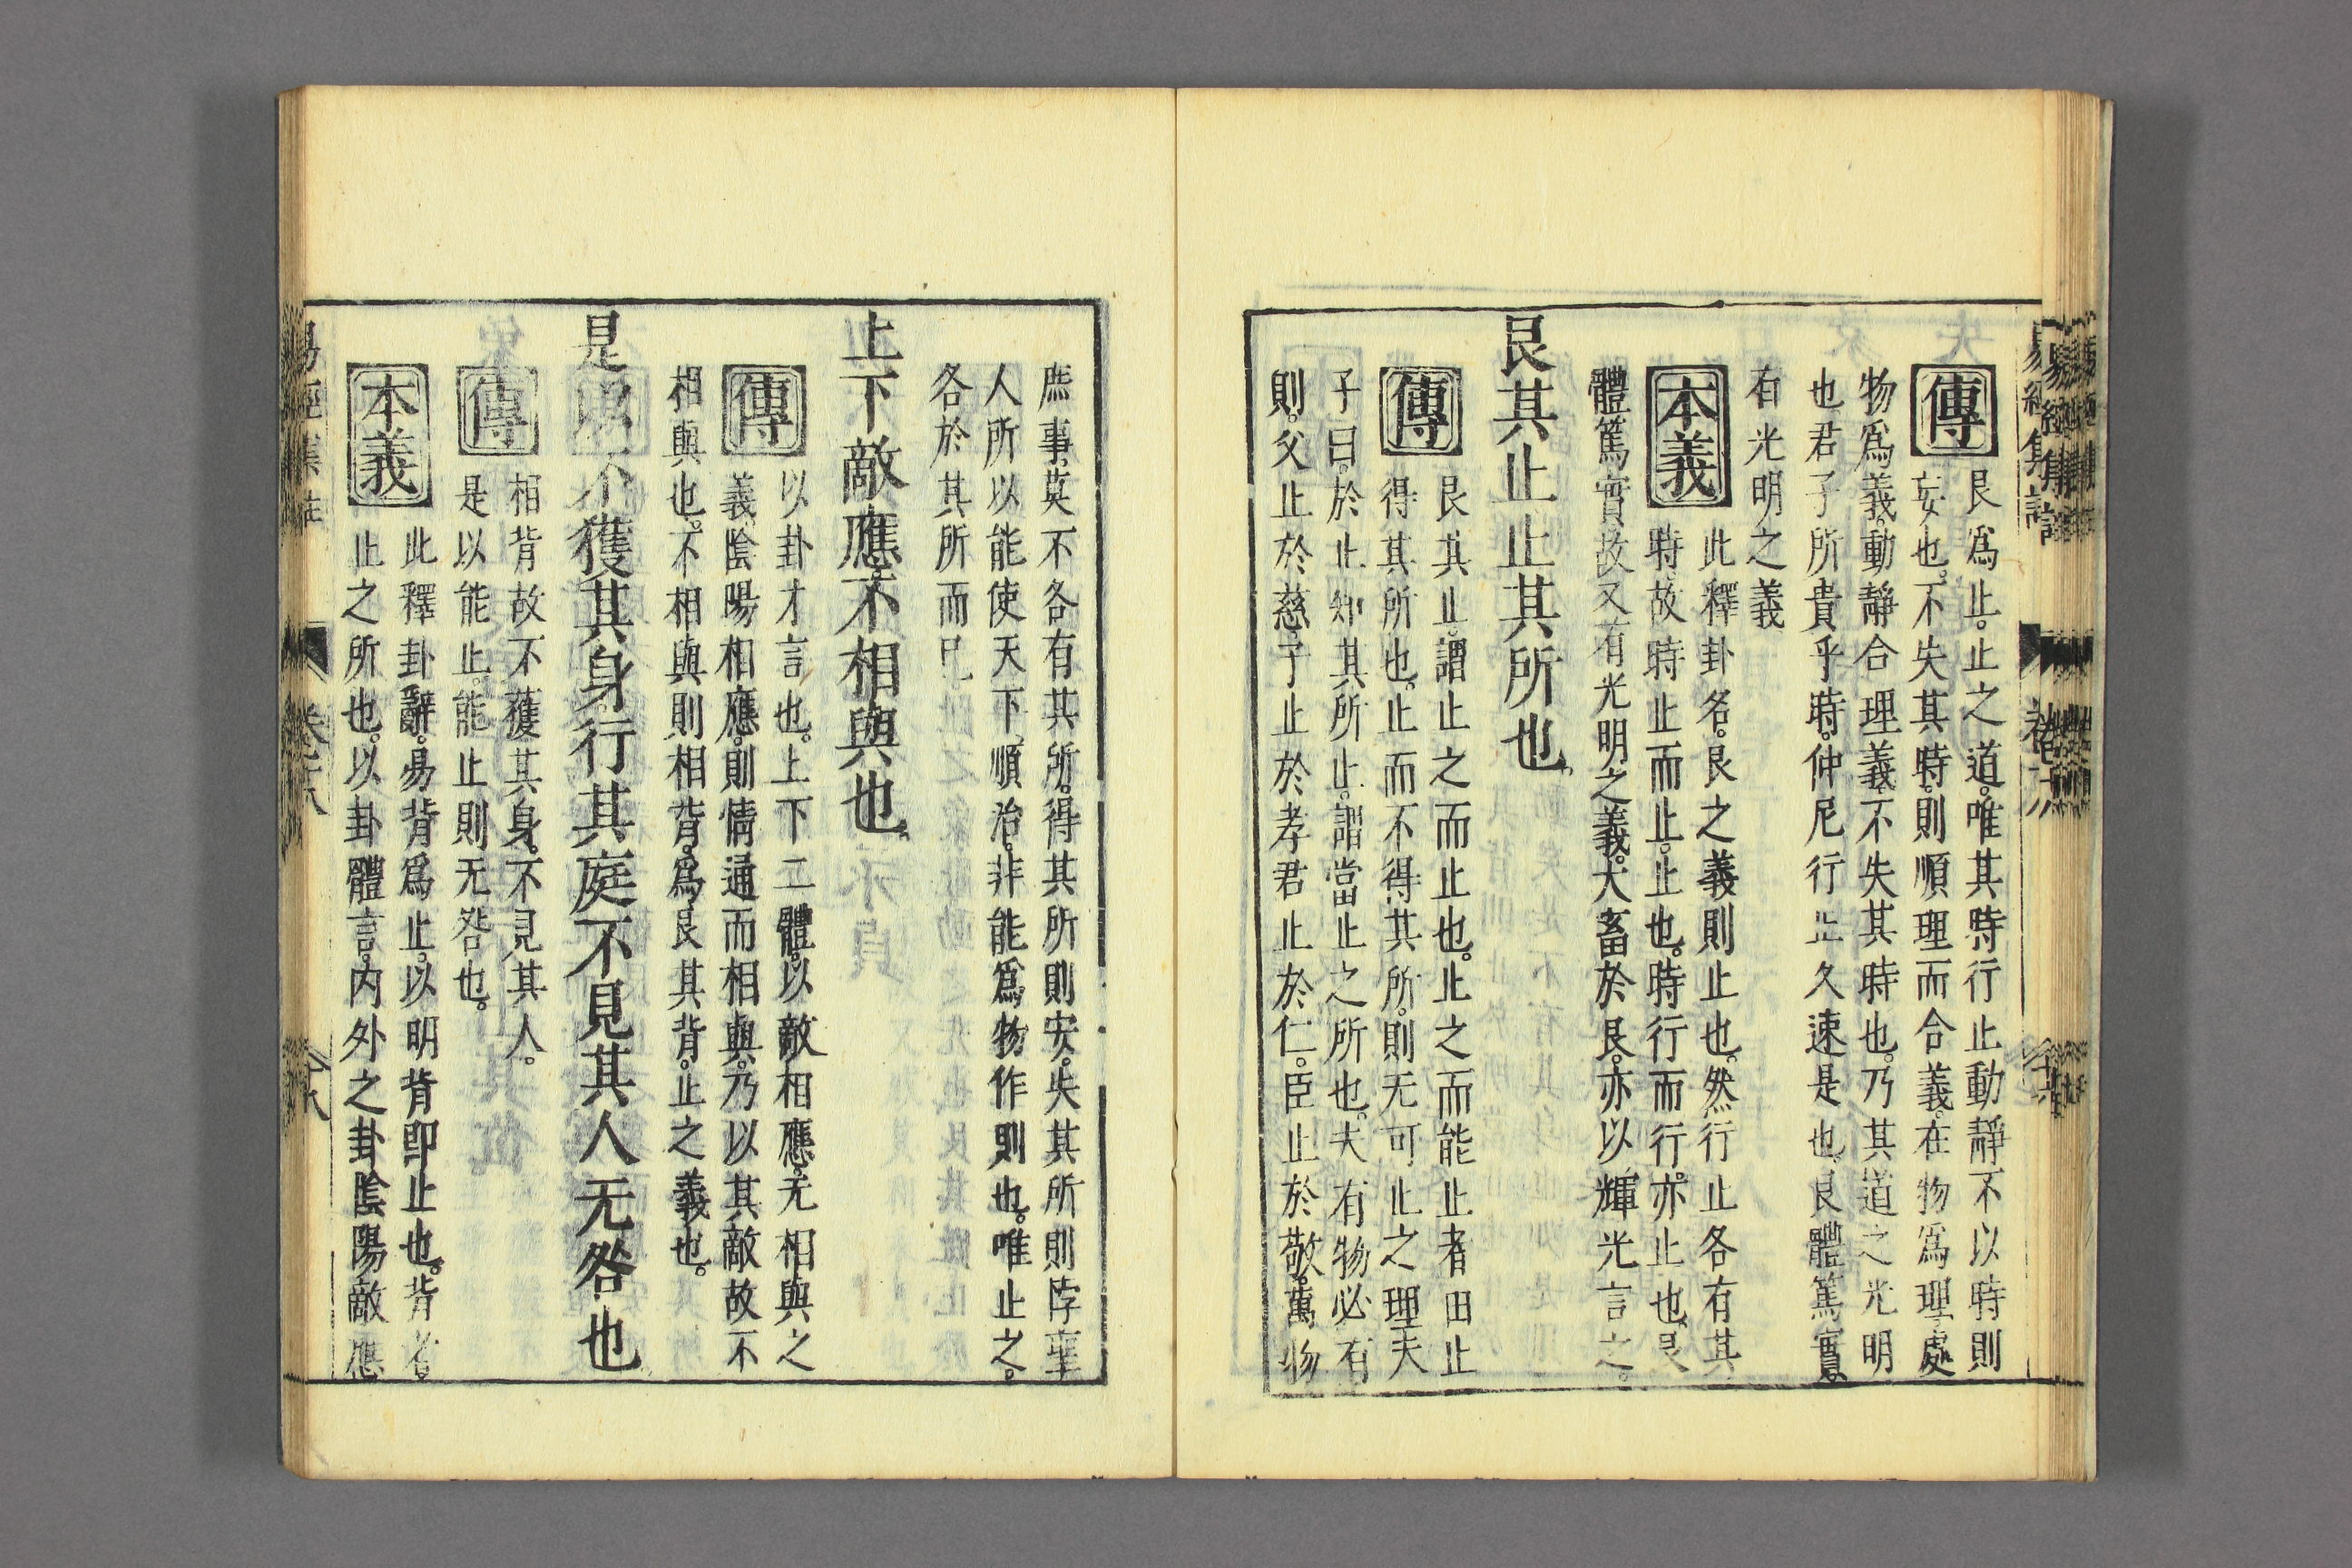 傳
艮爲止。止之道。唯其時行止動靜不以時則
妄也。不失其時。則順理而合義。在物爲理。處
物爲義。動靜合理義。不失其時也。乃其道之光明
也君子所貴乎時。仲尼行止久速是也。艮體篤實。
有光明之義
本義
此釋卦名。艮之義則止也。然行止各有其
時。故時止而止。止也。時行而行。亦止也。艮
體篤實。故又有光明之義。大畜於艮。亦以輝光言之。
艮其止止其所也。
傳
艮其止。謂止之而止也。止之而能止者由止
得其所也。止而不得其所。則无可止之理夫
子曰。於止知其所止。謂當止之所也。夫有物必有
則。父止於慈。子止於孝君止於仁。臣止於敬。萬物
庶事。莫不各有其所。得其所則安。失其所則悖聖
人所以能使天下順治。非能爲物作則也。唯止之。
各於其所而已
上下敵應。不相與也。
傳
以卦才言也。上下二體。以敵相應。无相與之
義陰陽相應。則情通而相與。乃以其敵故不
相與也。不相與則相背。爲艮其背。止之義也。
是以不獲其身行其庭不見其人无咎也
傳
相背故不獲其身。不見其人。
是以能止。能止則无咎也。
本義
此釋卦辭。易背爲止。以明背即止也。背者。
止之所也。以卦體言。内外之卦陰陽敵應
易經集註